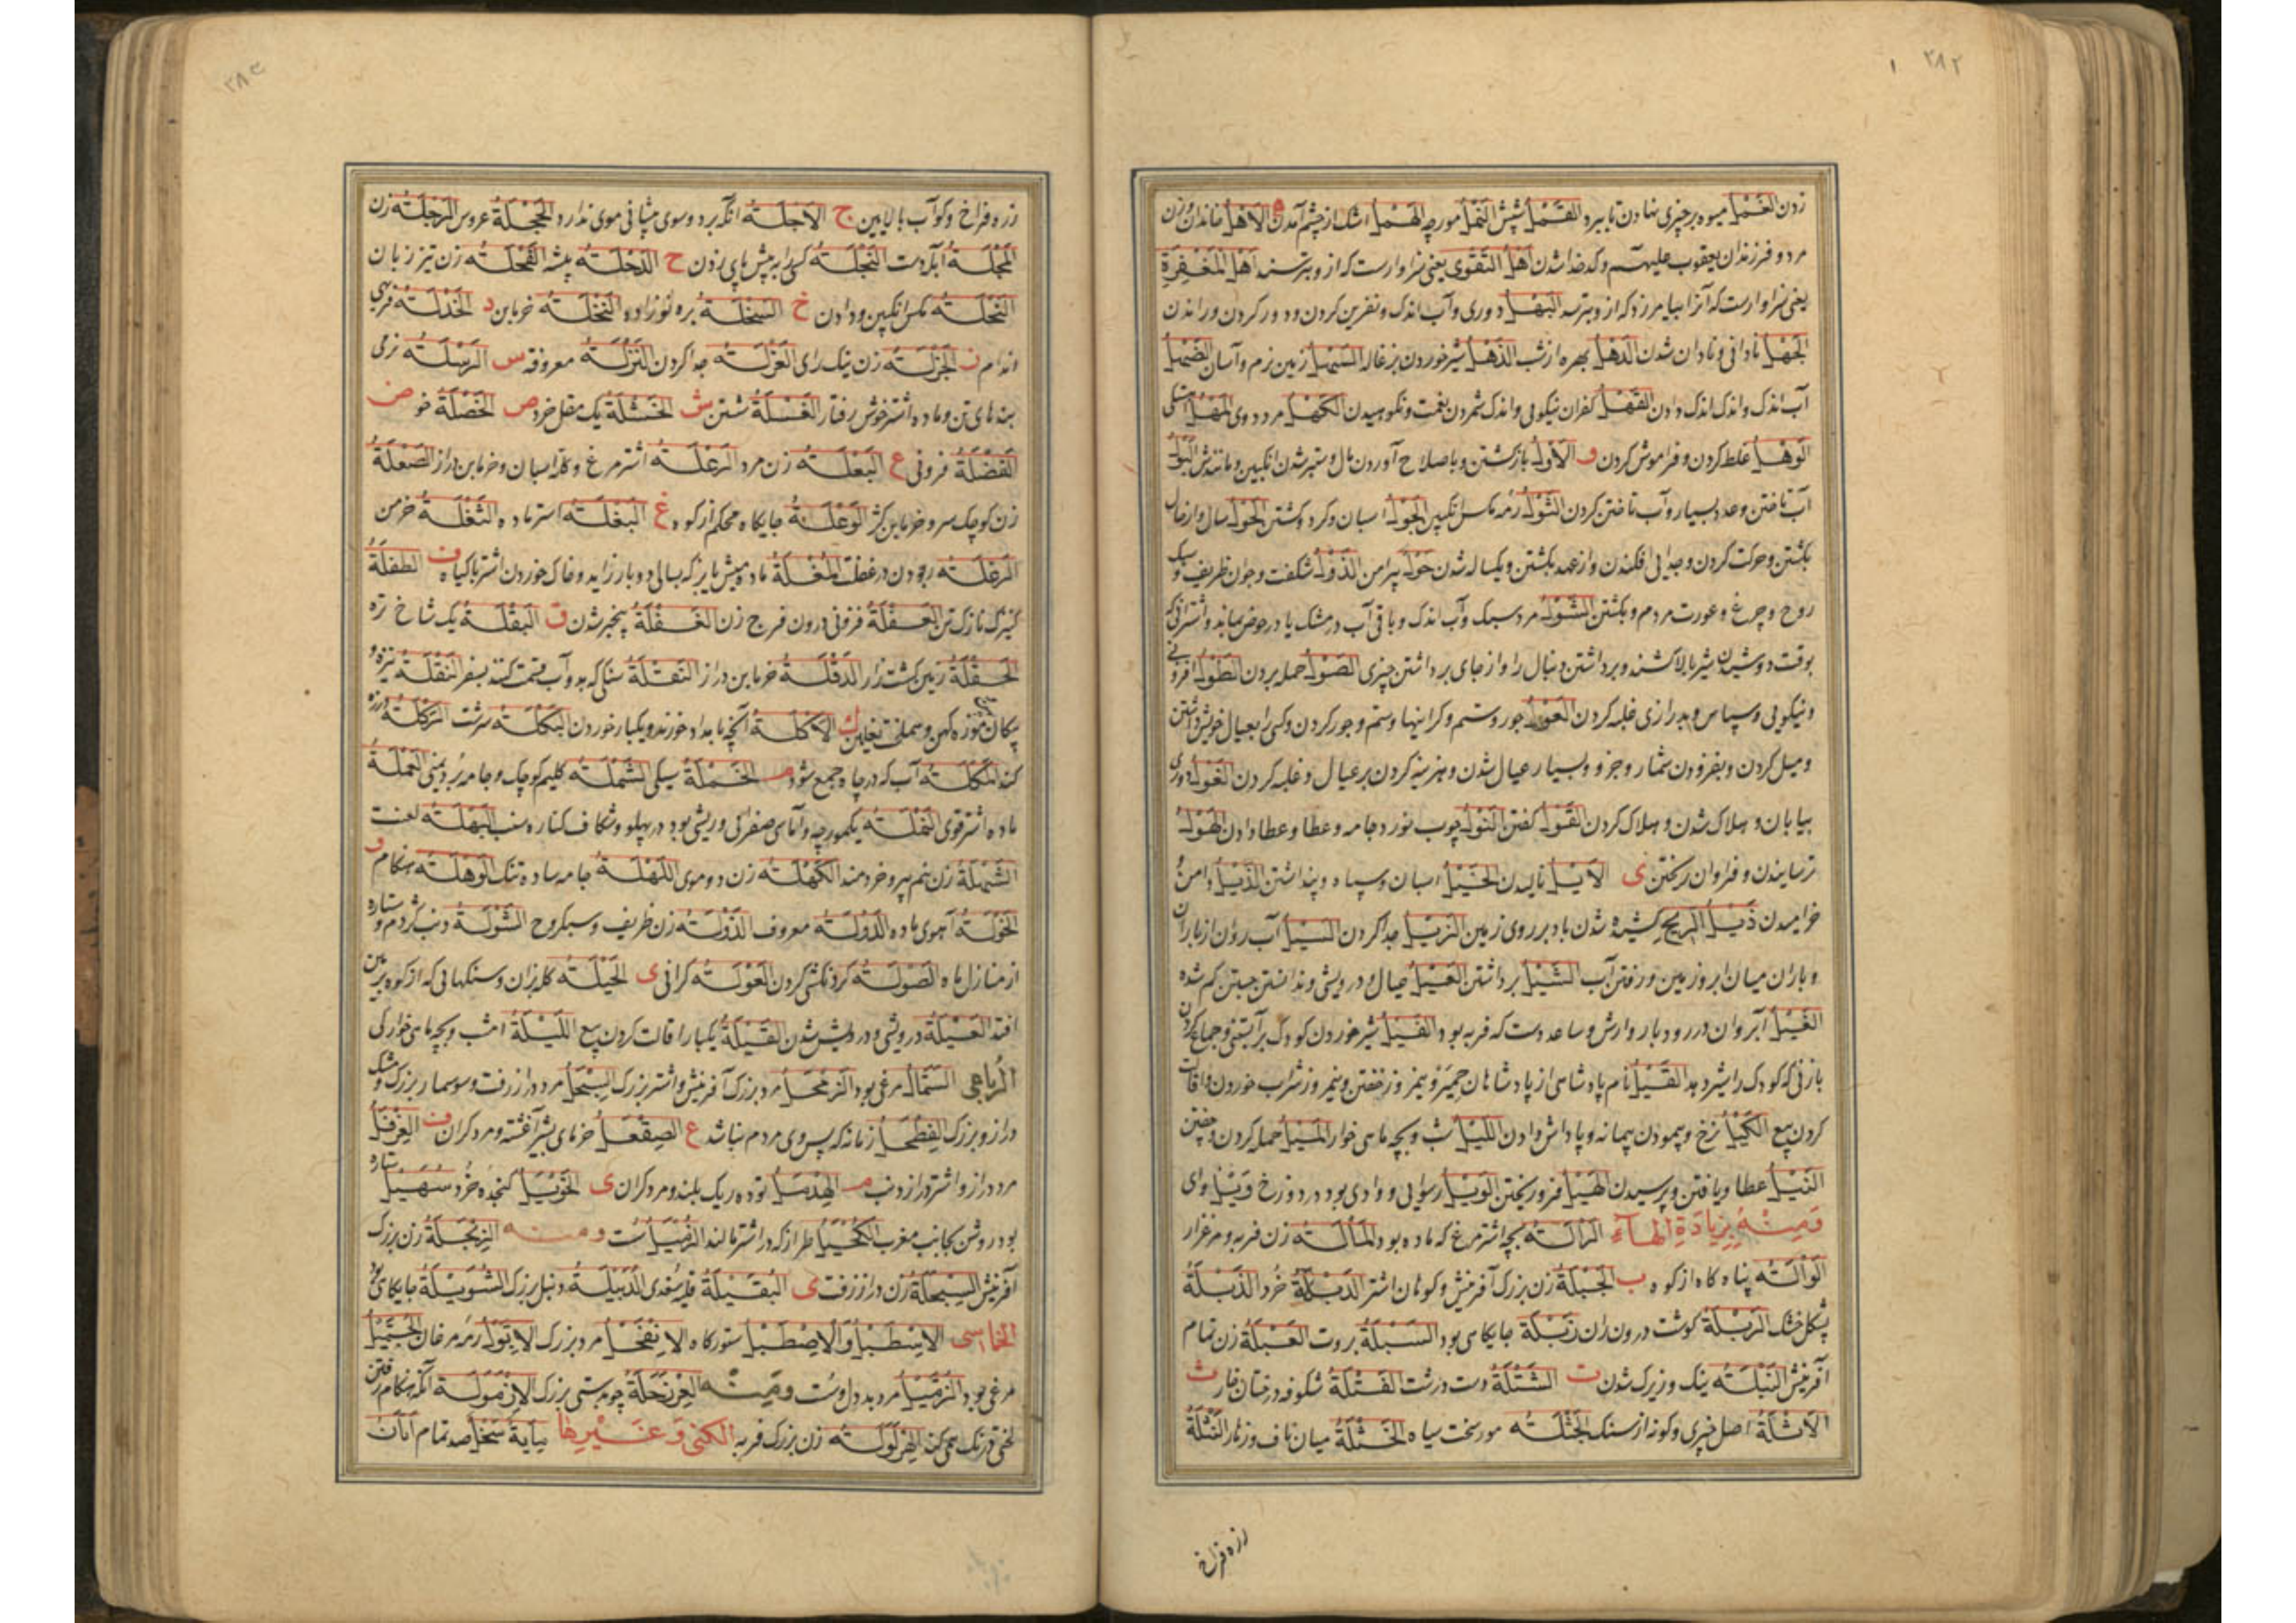 ۲۸۲
زدن الغَمْل میوه بر چیزی نهادن تا بپرد القَمْل شپش النَمْل مورچه الهَمْل اشک از چشم آمدن ه الاَهْل خاندان وزن
مرد و فرزندان یعقوب علیهم و کدخدا شدن اَهْلُ التَقْوی یعنی سزاوارست که ازو بترسند اَهْلُ المَغْفِرَةِ
یعنی سزاوارست که آنرا بیامرزد که ازو بترسد البَهْل دوری و آب اندک و نفرین کردن و دور کردن وراندن
الجَهْل نادانی و نادان شدن الدَهْل بهره از شب الذَهْل شیر خوردن بزغاله السَهْل زمین نرم و آسان الضَهْل
آب اندک و اندک اندک دادن القَهْل کفران نیکوئی و اندک شمردن نعمت و نکوهیدن الکَهْل مرد دوموی المَهْل
الوَهْل غلط کردن و فراموش کردن و الاَوْل بازگشتن و باصلاح آوردن مال و ستبر شدن انگبین و مانندش البَوْل
آب تاختن و عدد بسیار و آب تاختن کردن الثَوْل رمه مکس انگبین الجَوْل اسبان و گرد گشتن الحَوْل سال و از حال
بگشتن و حرکت کردن و جدایی افکندن و از عهد بگشتن و یکساله شدن حَوْل پیرامن الذَوْل شگفت و جوان ظریف و سبک
روح و چرغ و عورت مردم و بگشتن الشَوْل مرد سبک و آب اندک و باقی آب در مشک یا در حوض بماند و اشترانی که
بوقت دوشیدن شیر بالا کشند و برداشتن دنبال را و از جای برداشتن چیزی الصَوْل حمله بردن الطَوْل افزونی
و نیکویی و سپاس و بدرازی غلبه کردن العَوْل جور و ستم و کرانیها و ستم و جور کردن و کسی را بعیال خویش داشتن
و میل کردن و بیفزودن شمار و جزو و بسیار عیال شدن و هزینه کردن بر عیال و غلبه کردن الغَوْل دوری
بیابان و هلاک شدن و هلاک کردن القَوْل گفتن النَوْل چوب نورد جامه و عطا و عطا دادن الهَوْل
ترسانیدن و فراوان ریختن ی الاَیْل نالیدن الخَیْل اسبان و سپاه و پنداشتن الذَیْل دامن
خرامیدن ذَیْلُ الرِیح کشیده شدن باد بر روی زمین الزَیْل جدا کردن السَیْل آب روان از باران
و باران میان ابر و زمین و رفتن آب الشَیْل برداشتن العَیْل عیال و درویشی و ندانستن جستن گم شده
الغَیْل آب روان در رودبار و ارش و ساعد دست که فربه بود القَیْل شیر خوردن کودک بر آبستنی و جماع کردن
بازنی که کودک را شیر دهد القَیْل نام پادشاهی از پادشاهان حِمْیَر و نیمروز خفتن و نیمروز شراب خوردن و اقالت
کردن بیع الکَیْل نرخ و پیمودن پیمانه و پاداش دادن اللَیْل شب و بچه ماهی خوار المَیْل حمله کردن و چفتن
النَیْل عطا و یافتن و پرسیدن الهَیْل فرو ریختن الوَیْل رسوایی و وادی بود در دوزخ وَیْل وای
وَمِنْهُ بِزِیَادَةِ الهَاءِ الرَالَة بچه اشتر مرغ که ماده بود المَالَة زن فربه و مرغزار
الوَالَة پناه گاه از کوه ب الجَبْلَة زن بزرگ آفرینش و کوهان اشتر الدَبْلَة خُرد الذَبْلَة
پشکل خشک الرَبْلَة گوشت درون ران زَبْلَة جایگاهی بود السَبْلَة بروت العَبْلَة زن تمام
آفرینش النَبْلَة نیک و زیرک شدن ت الشَتْلَة دست درشت الفَتْلَة شکوفه درختان خار ث
الاَثْلَة اصل چیزی و گونه از سنگ الجَثْلَة مور سخت سیاه الخَثْلَة میان ناف و زهار النَثْلَة
زره فراخ
۲۸۳
زره فراخ و کوآب بالایین ج الاَجلَة آنکه بر دو سوی پیشانی موی ندارد الحَجْلَة عروس الرَجْلَة زن
المَجْلَة آبله دست النَجْلَة کسی را به پیش پای زدن ح الدَحْلَة پشه القَحْلَة زن تیز زبان
النَحْلَة مگس انگبین و دادن خ السَخْلَة بره نوزاده النَخْلَة خرمابن د الخَدْلَة فربهی
اندام ز الجَزْلَة زن نیک رای العَزْلَة جدا کردن النَزْلَة معروفه س الرَسْلَة نرمی
بندهای تن و ماده اشتر خوش رفتار الغَسْلَة شستن ش الخَشْلَة یک مقل خرد ص الخَصْلَة خو ض
الفَضْلَة فزونی ع البَعْلَة زن مرد الرَعْلَة اشتر مرغ و گله اسبان و خرمابن دراز الصَعْلَة
زن کوچک سر و خرمابن کژ الوَعْلَة جایگاه محکم از کوه غ البَغْلَة استر ماده الثَغْلَة خرمن
الرَغْلَة ربودن در غفلت المَغْلَة ماده میش یا بز که بسالی دو بار زاید و خاک خوردن اشتر با گیاه ف الطَفْلَة
کنیزک نازک تن العَفْلَة فزونی درون فرج زن الغَفْلَة بیخبر شدن ق البَقْلَة یک شاخ تره
الحَقْلَة زمین کشت زار الدَقْلَة خرمابن دراز النَقْلَة سنگی که بدو آب قسمت کنند بسفر النَقْلَة نیزه و
پیکان و موزه کهن و سملخت نعلین ک الاَکْلَة آنچه بامداد خورند و یکبار خوردن البَکْلَة سرشت الرَکْلَة
کند المَکْلَة آب که در چاه جمع شود م الخَمْلَة سبکی الشَمْلَة گلیم کوچک و جامه برد یمنی العَمْلَة
ماده اشتر قوی النَمْلَة یکمورچه و آماسی صفرائی و ریشی بود در پهلو و شکاف کناره سنب البَهْلَة لعنت
الشَهْلَة زن نیم پیر و خردمند الکَهْلَة زن دو موی اللَهْلَة جامه ساده تنک الوَهْلَة هنگام و
الخَوْلَة آهوی ماده الدَوْلَة معروف الذَوْلَة زن ظریف و سبکروح الشَوْلَة دنب کژدم و ستاره
از منازل ماه الصَوْلَة گردنکشی کردن العَوْلَة گرانی ی الحَیْلَة گله بزان و سنگهائی که از کوه بزمین
افتد العَیْلَة درویشی و درویش شدن القَیْلَة یکبار اقالت کردن بیع اللَیْلَة امشب و بچه ماهی خوارکی
الرُباعی السَمَّال مرغی بود الزَمَحْل مرد بزرگ آفرینش و اشتر بزرگ السِبَحْل مرد دراز زفت و سوسمار بزرگ و مشک
دراز و بزرگ الفِطَحْل زمانه که پس وی مردم نباشد ع الصِقَعْل خرمای بشیر آغشته و مرد گران ف الغِرْفَل
مرد دراز و اشتر دراز دنب م الهِدَمْل توده ریک بلند و مرد گران ی الحَوْیَل کنجده خُرد سُهَیْل ستاره
بود روشن بجانب مغرب الکُحَیْل قطران که در اشتر مالند الزُمَّیْل سست ومنه الزِبَحْلَة زن بزرگ
آفرینش السِبَحْلَة زن دراز زفت ی البُقَیْلَة قبله سُغدی الدُبَیْلَة دنبل بزرگ الشُوَیْلَة جایگاهی بود
الخماسی الاِسْطَبْل وَالاِصْطَبْل ستورگاه الاِنْقَحْل مرد بزرگ الاِبَّوْل رمه مرغان الجُمَّیْل
مرغی بود الزُمَّیْل مرد بددل و سست وَمِنْهُ العِرْنَحْلَة چوبدستی بزرگ الاِزْمَوْلَة آنکه هنگام رفتن
لختی درنگ همی کند الهِرْکَوْلَة زن بزرگ فربه الکنی وَغَیْرِها مِایَة سَحْل صد تمام اَتَان